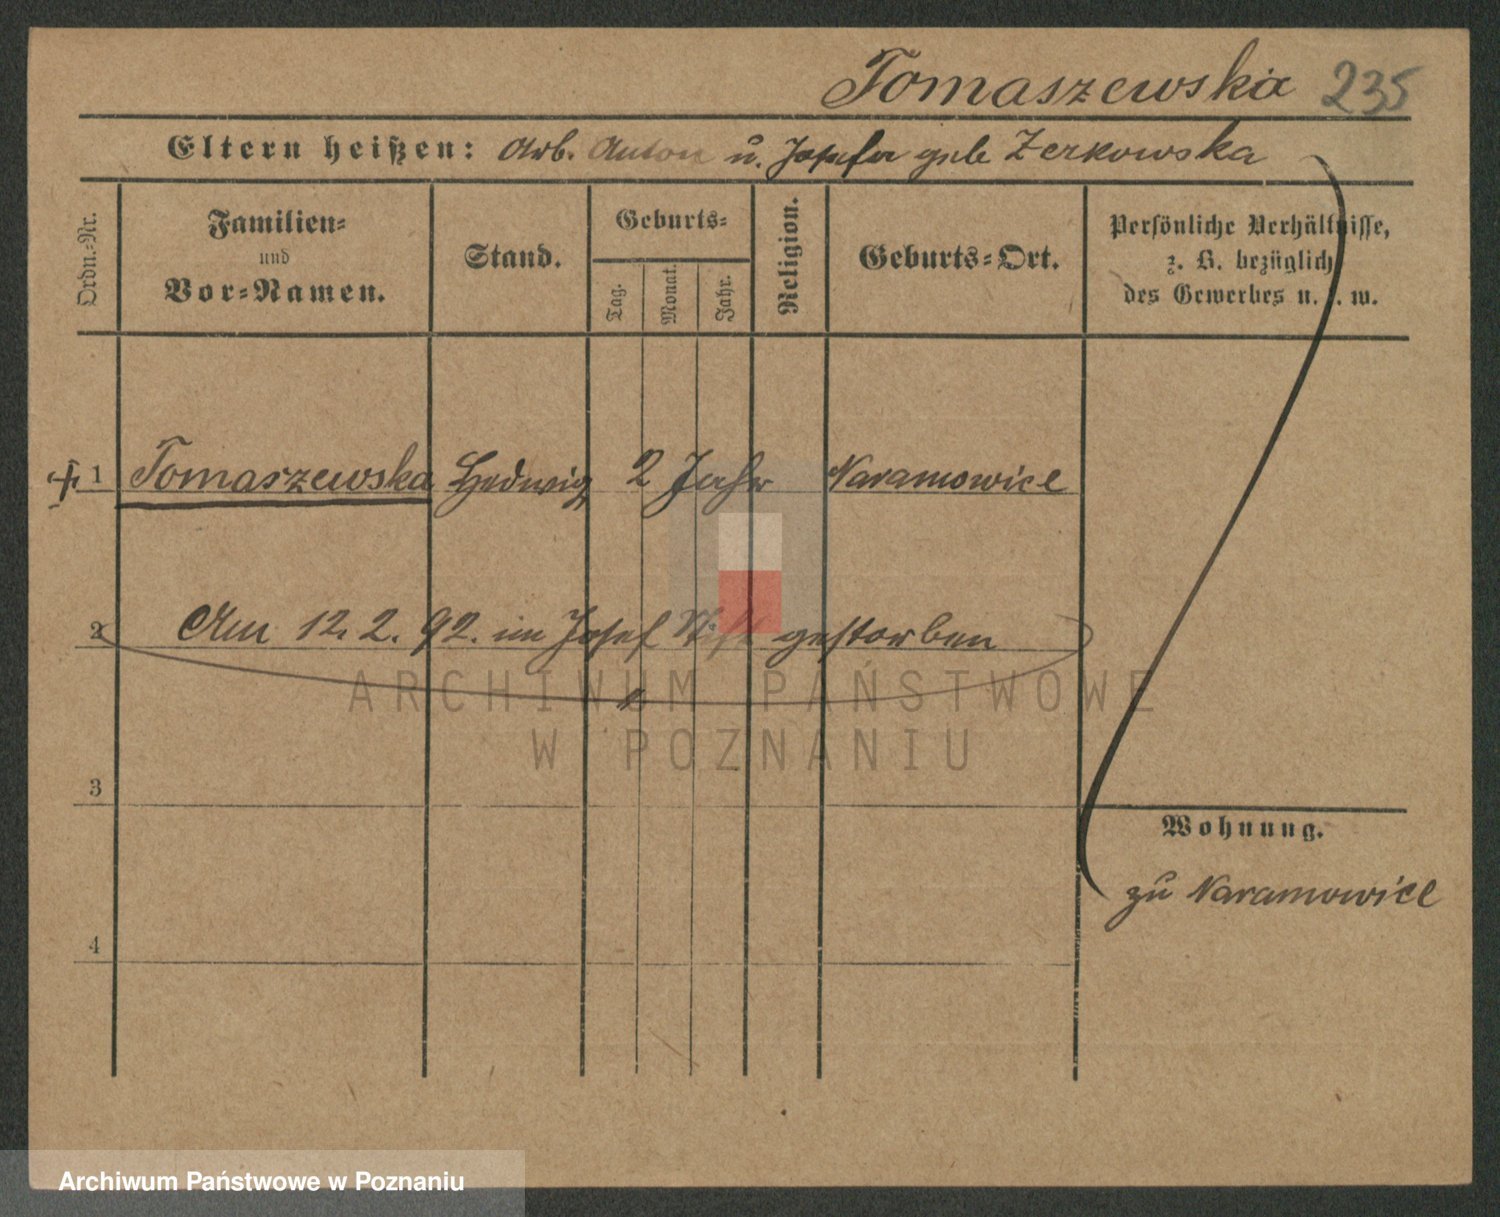 Tomaszewska 235
Eltern heißen: Arb. Anton u. Josefa geb Zerkowska
Ordn.-Nr.
Familien-
und
Vor-Namen.
Stand.
Geburts-
Tag.
Monat.
Jahr.
Religion.
Geburts-Ort.
Persönliche Verhältnisse,
z. B. bezüglich
des Gewerbes u. s. w.
1 Tomaszewska Hedwig 2 Jahr Naramowice
2 Am 12. 2. 92. im Josef Stift gestorben
ARCHIWUM PAŃSTWOWE
W POZNANIU
3
Wohnung.
zu Naramowice
4
Archiwum Państwowe w Poznaniu